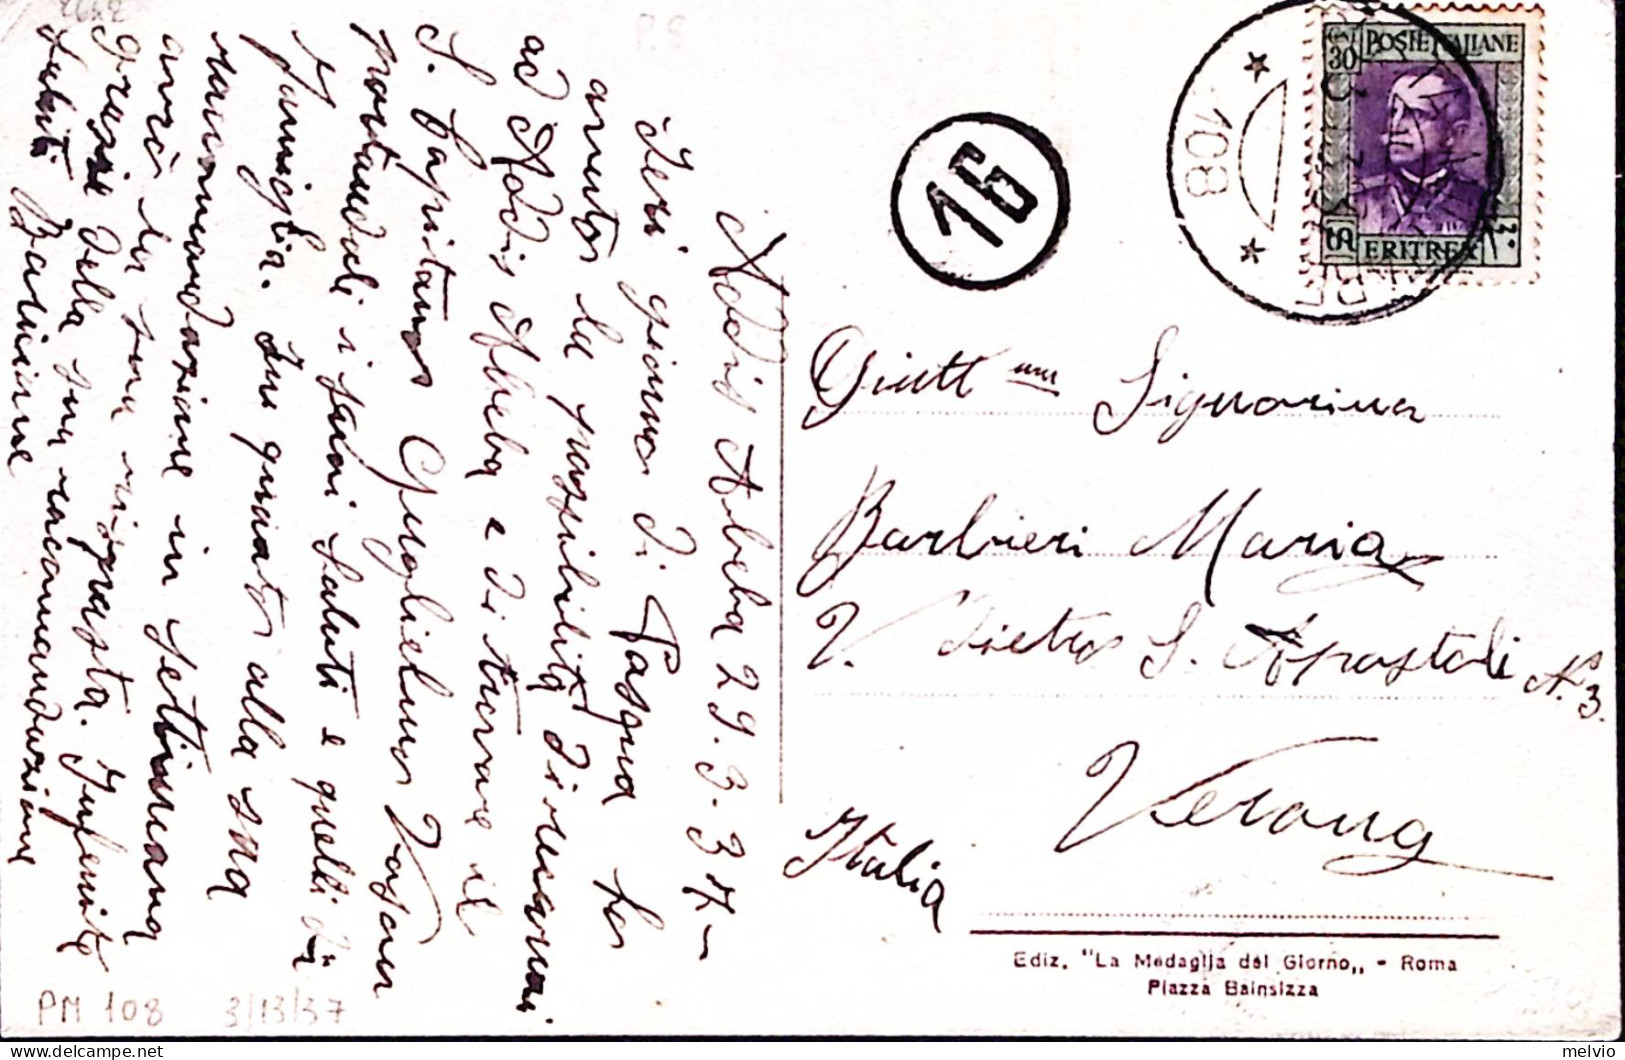 Addis Abeba 29.3.37-
Ieri giorno di Pasqua ho
avuto la possibilità di recarmi
ad Addis Abeba e di trovare il
S. Capitano Guglielmo
portandoli i suoi saluti e quelli di
famiglia. In quanto alla sua
raccomandazione in settimana
avrò la sua risposta. Infinite
grazie della sua raccomandazione
Saluti
POSTE ITALIANE
CENT
30
ERITREA
108
16
Gentt ma Signorina
Barbieri Maria
V. Pietro S. Apostoli N. 3.
Verona
Italia
Ediz. "La Medaglia del Giorno„ - Roma
Piazza Bainsizza
PM 108 3/13/37
melvio